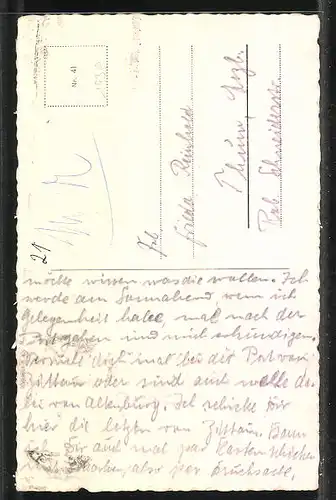 Nr. 41
21
Frl.
Frieda Reinhold
Thum, Erzb.
Rob. Schneiderstr.
möchte wissen was die wollen. Ich
werde am Sonnabend wenn ich
Gelegenheit habe, mal nach der
Post gehen und mich erkundigen.
dich mal bei dir Post von
Zittau oder sind auch welche da
bei von Altenburg. Ich schicke dir
hier die letzten von Zittau. Dann
ich Dir auch mal par Karten schicken
also par Drucksache,